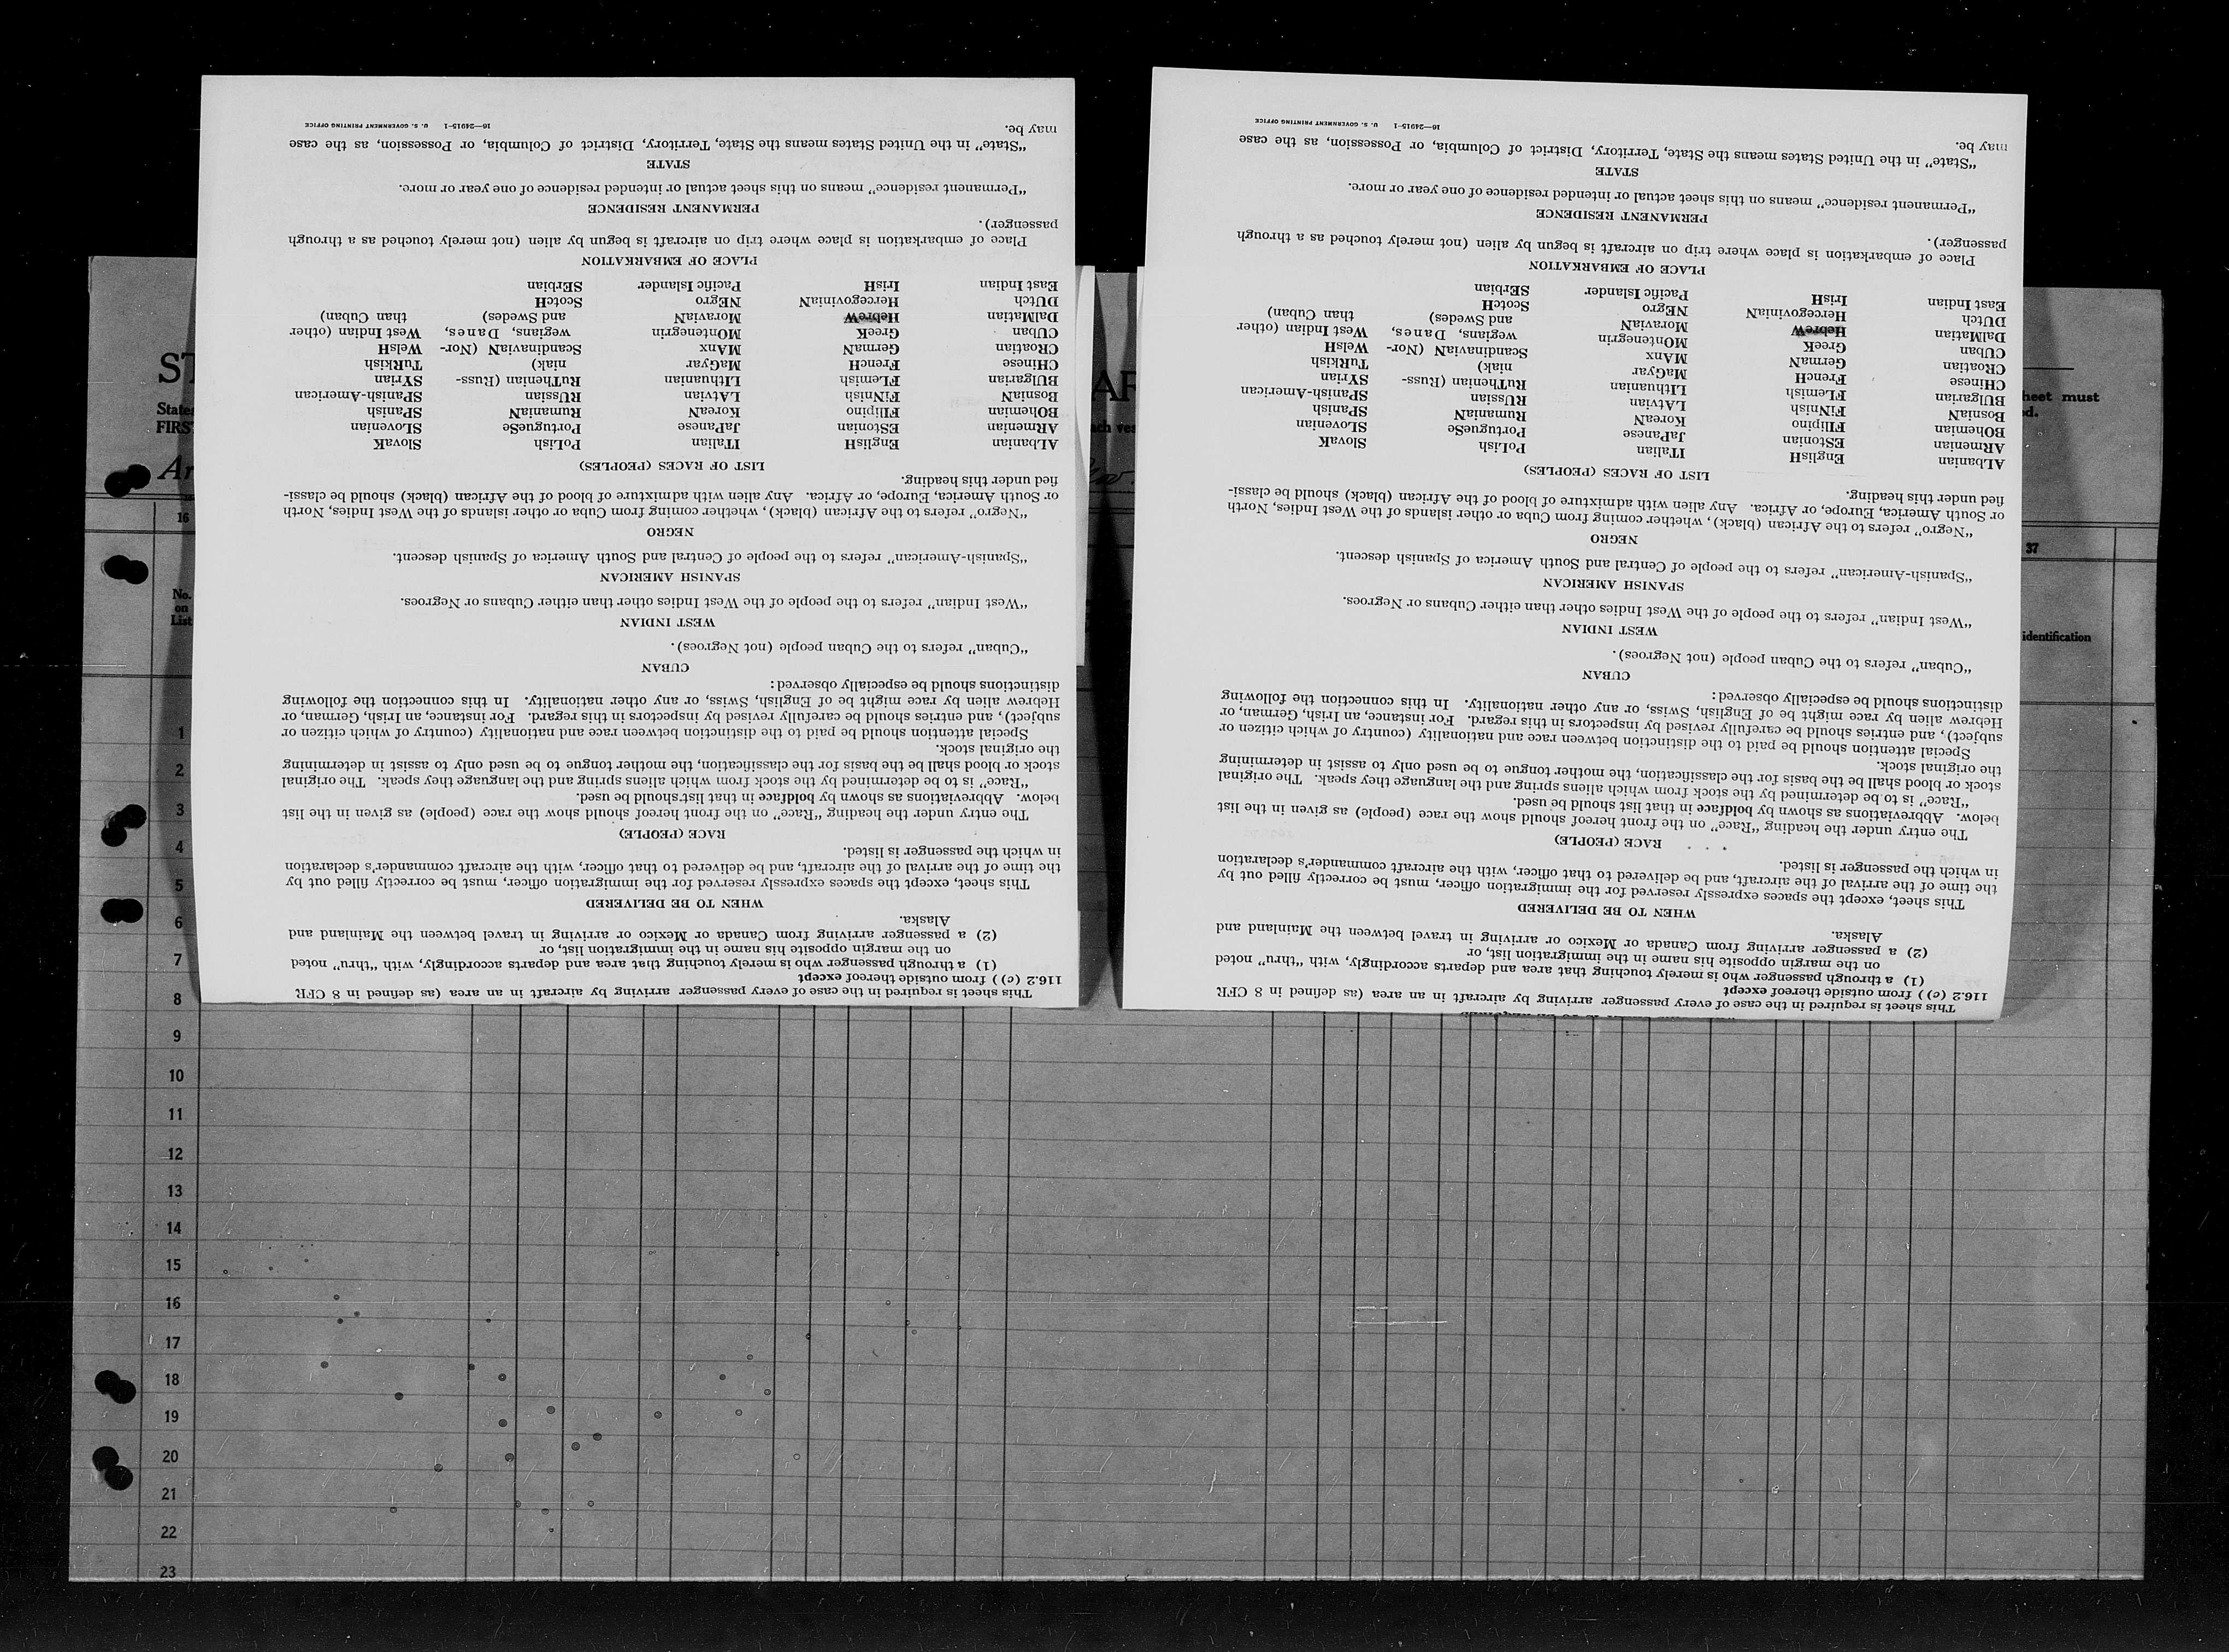 ST
AR
States
sheet must
FIRS
each ves
ed.
Ar
16
37
No.
on
List
identification
1
2
3
4
5
6
7
8
9
10
11
12
13
14
15
16
17
18
19
20
21
22
23
This sheet is required in the case of every passenger arriving by aircraft in an area (as defined in 8 CFR
116.2 (c)) from outside thereof except
(1) a through passenger who is merely touching that area and departs accordingly, with “thru” noted
on the margin opposite his name in the immigration list, or
(2) a passenger arriving from Canada or Mexico or arriving in travel between the Mainland and
Alaska.
WHEN TO BE DELIVERED
This sheet, except the spaces expressly reserved for the immigration officer, must be correctly filled out by
the time of the arrival of the aircraft, and be delivered to that officer, with the aircraft commander’s declaration
in which the passenger is listed.
RACE (PEOPLE)
The entry under the heading “Race” on the front hereof should show the race (people) as given in the list
below. Abbreviations as shown by boldface in that list should be used.
“Race” is to be determined by the stock from which aliens spring and the language they speak. The original
stock or blood shall be the basis for the classification, the mother tongue to be used only to assist in determining
the original stock.
Special attention should be paid to the distinction between race and nationality (country of which citizen or
subject), and entries should be carefully revised by inspectors in this regard. For instance, an Irish, German, or
Hebrew alien by race might be of English, Swiss, or any other nationality. In this connection the following
distinctions should be especially observed:
CUBAN
“Cuban” refers to the Cuban people (not Negroes).
WEST INDIAN
“West Indian” refers to the people of the West Indies other than either Cubans or Negroes.
SPANISH AMERICAN
“Spanish-American” refers to the people of Central and South America of Spanish descent.
NEGRO
“Negro” refers to the African (black), whether coming from Cuba or other islands of the West Indies, North
or South America, Europe, or Africa. Any alien with admixture of blood of the African (black) should be classi-
fied under this heading.
LIST OF RACES (PEOPLES)
ALbanian EnglisH ITalian PoLish SlovaK
ARmenian EStonian JaPanese PortugueSe SLovenian
BOhemian FIlipino KoreaN RumaniaN SPanish
BosniaN FiNnish LAtvian RUssian SPanish-American
BUlgarian FLemish LIthuanian RuThenian (Russ- SYrian
CHinese FrencH MaGyar niak) TuRkish
CRoatian GermaN MAnx ScandinaviaN (Nor- WelsH
CUban GreeK MOntenegrin wegians, Danes, West Indian (other
DalMatian HebreW MoraviaN and Swedes) than Cuban)
DUtch HercegoviniaN NEgro ScotcH
East Indian IrisH Pacific Islander SErbian
PLACE OF EMBARKATION
Place of embarkation is place where trip on aircraft is begun by alien (not merely touched as a through
passenger).
PERMANENT RESIDENCE
“Permanent residence” means on this sheet actual or intended residence of one year or more.
STATE
“State” in the United States means the State, Territory, District of Columbia, or Possession, as the case
may be.
16—24915-1 U. S. GOVERNMENT PRINTING OFFICE
This sheet is required in the case of every passenger arriving by aircraft in an area (as defined in 8 CFR
116.2 (c)) from outside thereof except
(1) a through passenger who is merely touching that area and departs accordingly, with “thru” noted
on the margin opposite his name in the immigration list, or
(2) a passenger arriving from Canada or Mexico or arriving in travel between the Mainland and
Alaska.
WHEN TO BE DELIVERED
This sheet, except the spaces expressly reserved for the immigration officer, must be correctly filled out by
the time of the arrival of the aircraft, and be delivered to that officer, with the aircraft commander’s declaration
in which the passenger is listed.
RACE (PEOPLE)
The entry under the heading “Race” on the front hereof should show the race (people) as given in the list
below. Abbreviations as shown by boldface in that list should be used.
“Race” is to be determined by the stock from which aliens spring and the language they speak. The original
stock or blood shall be the basis for the classification, the mother tongue to be used only to assist in determining
the original stock.
Special attention should be paid to the distinction between race and nationality (country of which citizen or
subject), and entries should be carefully revised by inspectors in this regard. For instance, an Irish, German, or
Hebrew alien by race might be of English, Swiss, or any other nationality. In this connection the following
distinctions should be especially observed:
CUBAN
“Cuban” refers to the Cuban people (not Negroes).
WEST INDIAN
“West Indian” refers to the people of the West Indies other than either Cubans or Negroes.
SPANISH AMERICAN
“Spanish-American” refers to the people of Central and South America of Spanish descent.
NEGRO
“Negro” refers to the African (black), whether coming from Cuba or other islands of the West Indies, North
or South America, Europe, or Africa. Any alien with admixture of blood of the African (black) should be classi-
fied under this heading.
LIST OF RACES (PEOPLES)
ALbanian EnglisH ITalian PoLish SlovaK
ARmenian EStonian JaPanese PortugueSe SLovenian
BOhemian FIlipino KoreaN RumaniaN SPanish
BosniaN FiNnish LAtvian RUssian SPanish-American
BUlgarian FLemish LIthuanian RuThenian (Russ- SYrian
CHinese FrencH MaGyar niak) TuRkish
CRoatian GermaN MAnx ScandinaviaN (Nor- WelsH
CUban GreeK MOntenegrin wegians, Danes, West Indian (other
DalMatian HebreW MoraviaN and Swedes) than Cuban)
DUtch HercegoviniaN NEgro ScotcH
East Indian IrisH Pacific Islander SErbian
PLACE OF EMBARKATION
Place of embarkation is place where trip on aircraft is begun by alien (not merely touched as a through
passenger).
PERMANENT RESIDENCE
“Permanent residence” means on this sheet actual or intended residence of one year or more.
STATE
“State” in the United States means the State, Territory, District of Columbia, or Possession, as the case
may be.
16—24915-1 U. S. GOVERNMENT PRINTING OFFICE